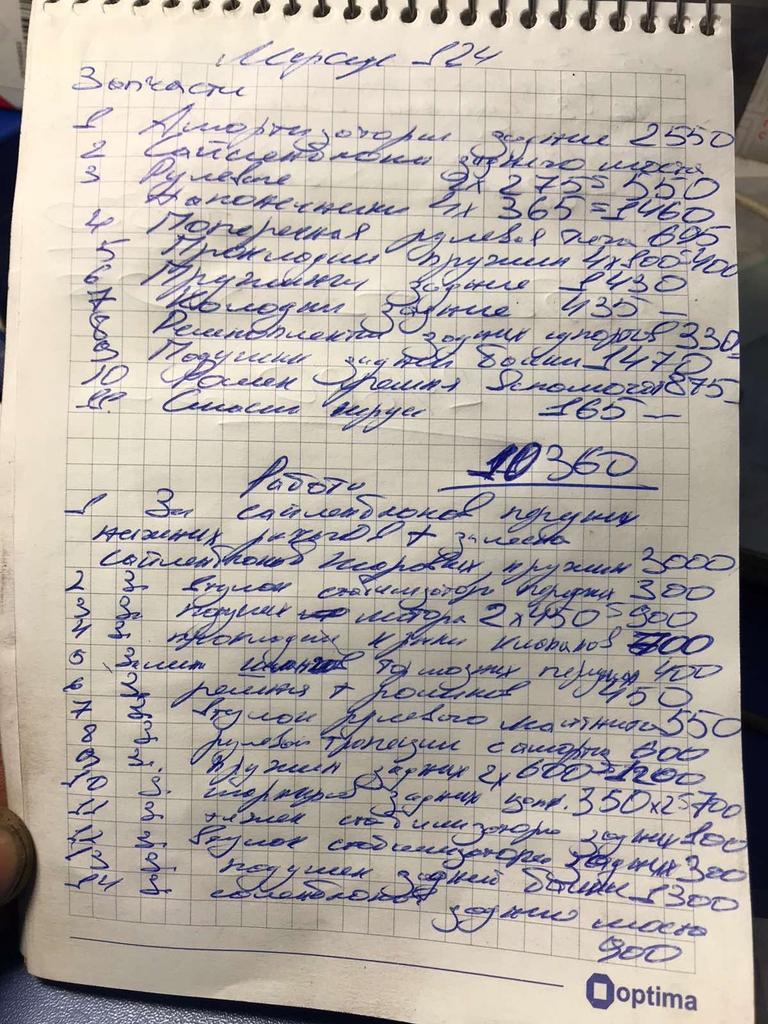 Мерседес 124
Запчасти
1 Амортизаторы задние 2550
2 Сайлентблоки заднего моста
2x 275= 550
3 Рулевые
Наконечники 4x 365 =1460
4 Поперечная рулевая тяга 695
5 Прокладки пружин 4x100=400
6 Пружины задние 1430
7 Колодки задние 435 –
8 Ремкомплект задних супортов 330
9 Подушки задней балки 1470
10 Ролик ремня 875
11. 165 –
10360
Работы
1 За сайлентблоков передних
нижних рычагов + замена
сайлентблоков пружин 3000
2 З. втулок стабилизатора передних 300
3 З. подушек мотора 2x450=900
4 З. прокладки крышки клапанов 700
5 Замена шлангов тормозных передних 400
6 З. ремня + роликов 450
7 З. втулок рулевого маятника 550
8 З. рулевой трапеции 600
9 З. пружин задних 2x 600=1200
10 З. задних 350x2=700
11 З. тяжек стабилизатора задних 100
12 З. втулок стабилизатора задних 300
13 З. подушек задней балки 1300
14 З. сайлентблоков
заднего моста
900
optima